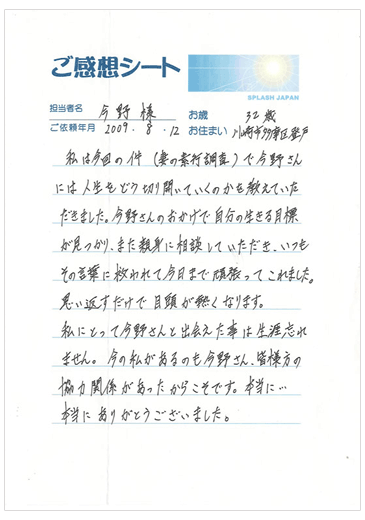 ご感想シート
SPLASH JAPAN
担当者名 今野 様
お歳 32歳
ご依頼年月 2009.8.12
お住まい 川崎市多摩区登戸
私は今回の件(妻の素行調査)で今野さん
には人生をどう切り開いていくのかを教えていた
だきました。今野さんのおかげで自分の生きる目標
が見つかり、また親身に相談していただき、いつも
その言葉に救われて今日まで頑張ってこれました。
思い返すだけで目頭が熱くなります。
私にとって今野さんと出会えた事は生涯忘れ
ません。今の私があるのも今野さん、皆様方の
協力関係があったからこそです。本当に…
本当にありがとうございました。